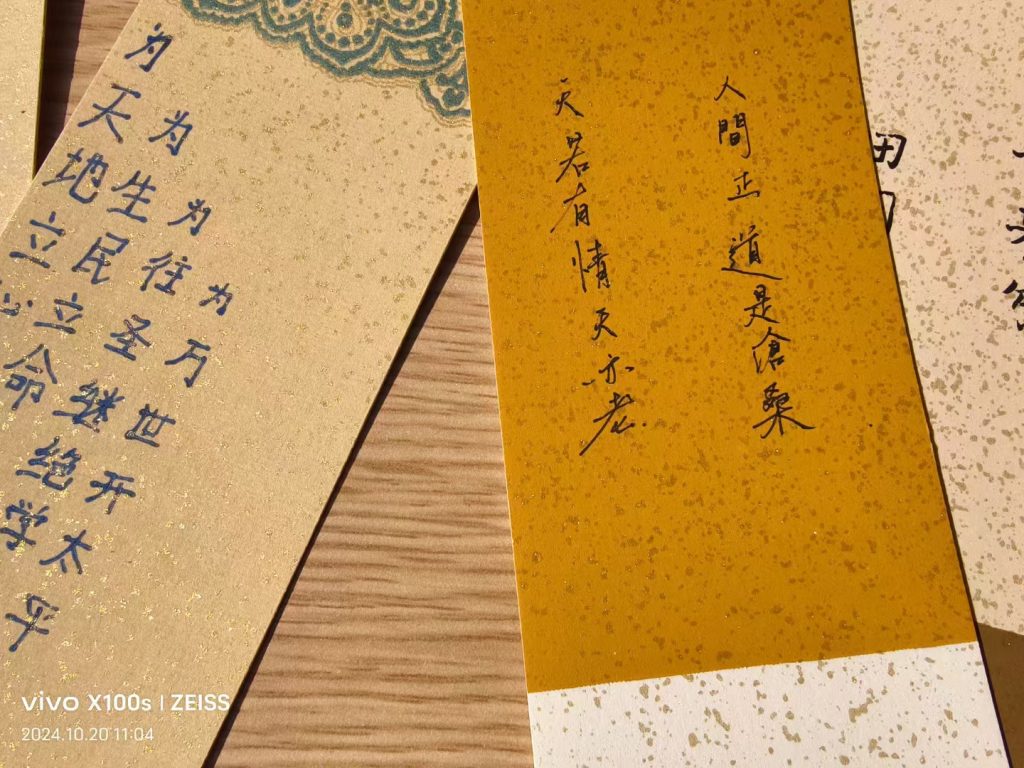 为天地立心
为生民立命
为往圣继绝学
为万世开太平
天若有情天亦老
人間正道是滄桑
田
vivo X100s | ZEISS
2024.10.20 11:04